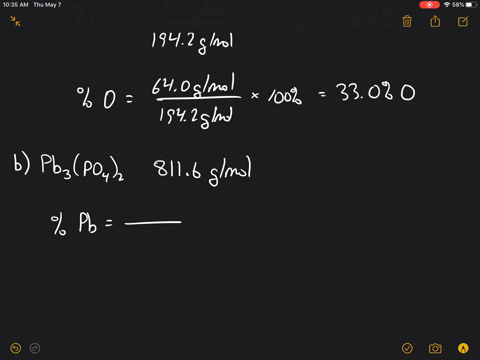 10:35 AM Thu May 7
58%
194.2 g/mol
% O = 64.0 g/mol / 194.2 g/mol × 100% = 33.0% O
b) Pb₃(PO₄)₂ 811.6 g/mol
% Pb =